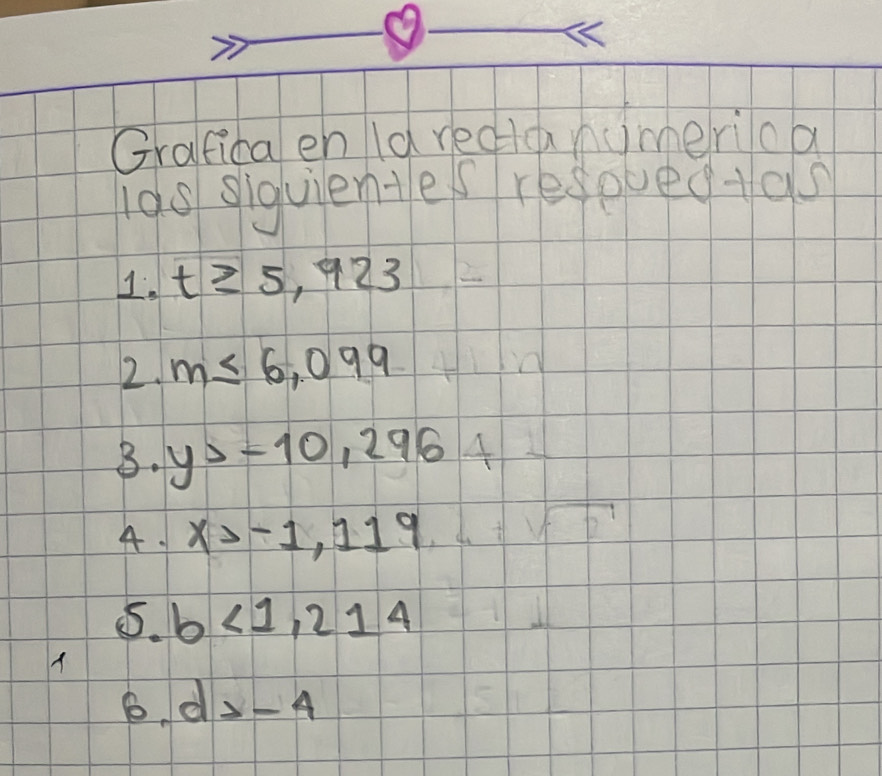 Grafica en la recta númerica
las siguientes respuestas
1. t ≥ 5,923
2. m ≤ 6,099
3. y > -10,296
4. x > -1,119
5. b < 1,214
6. d > -4